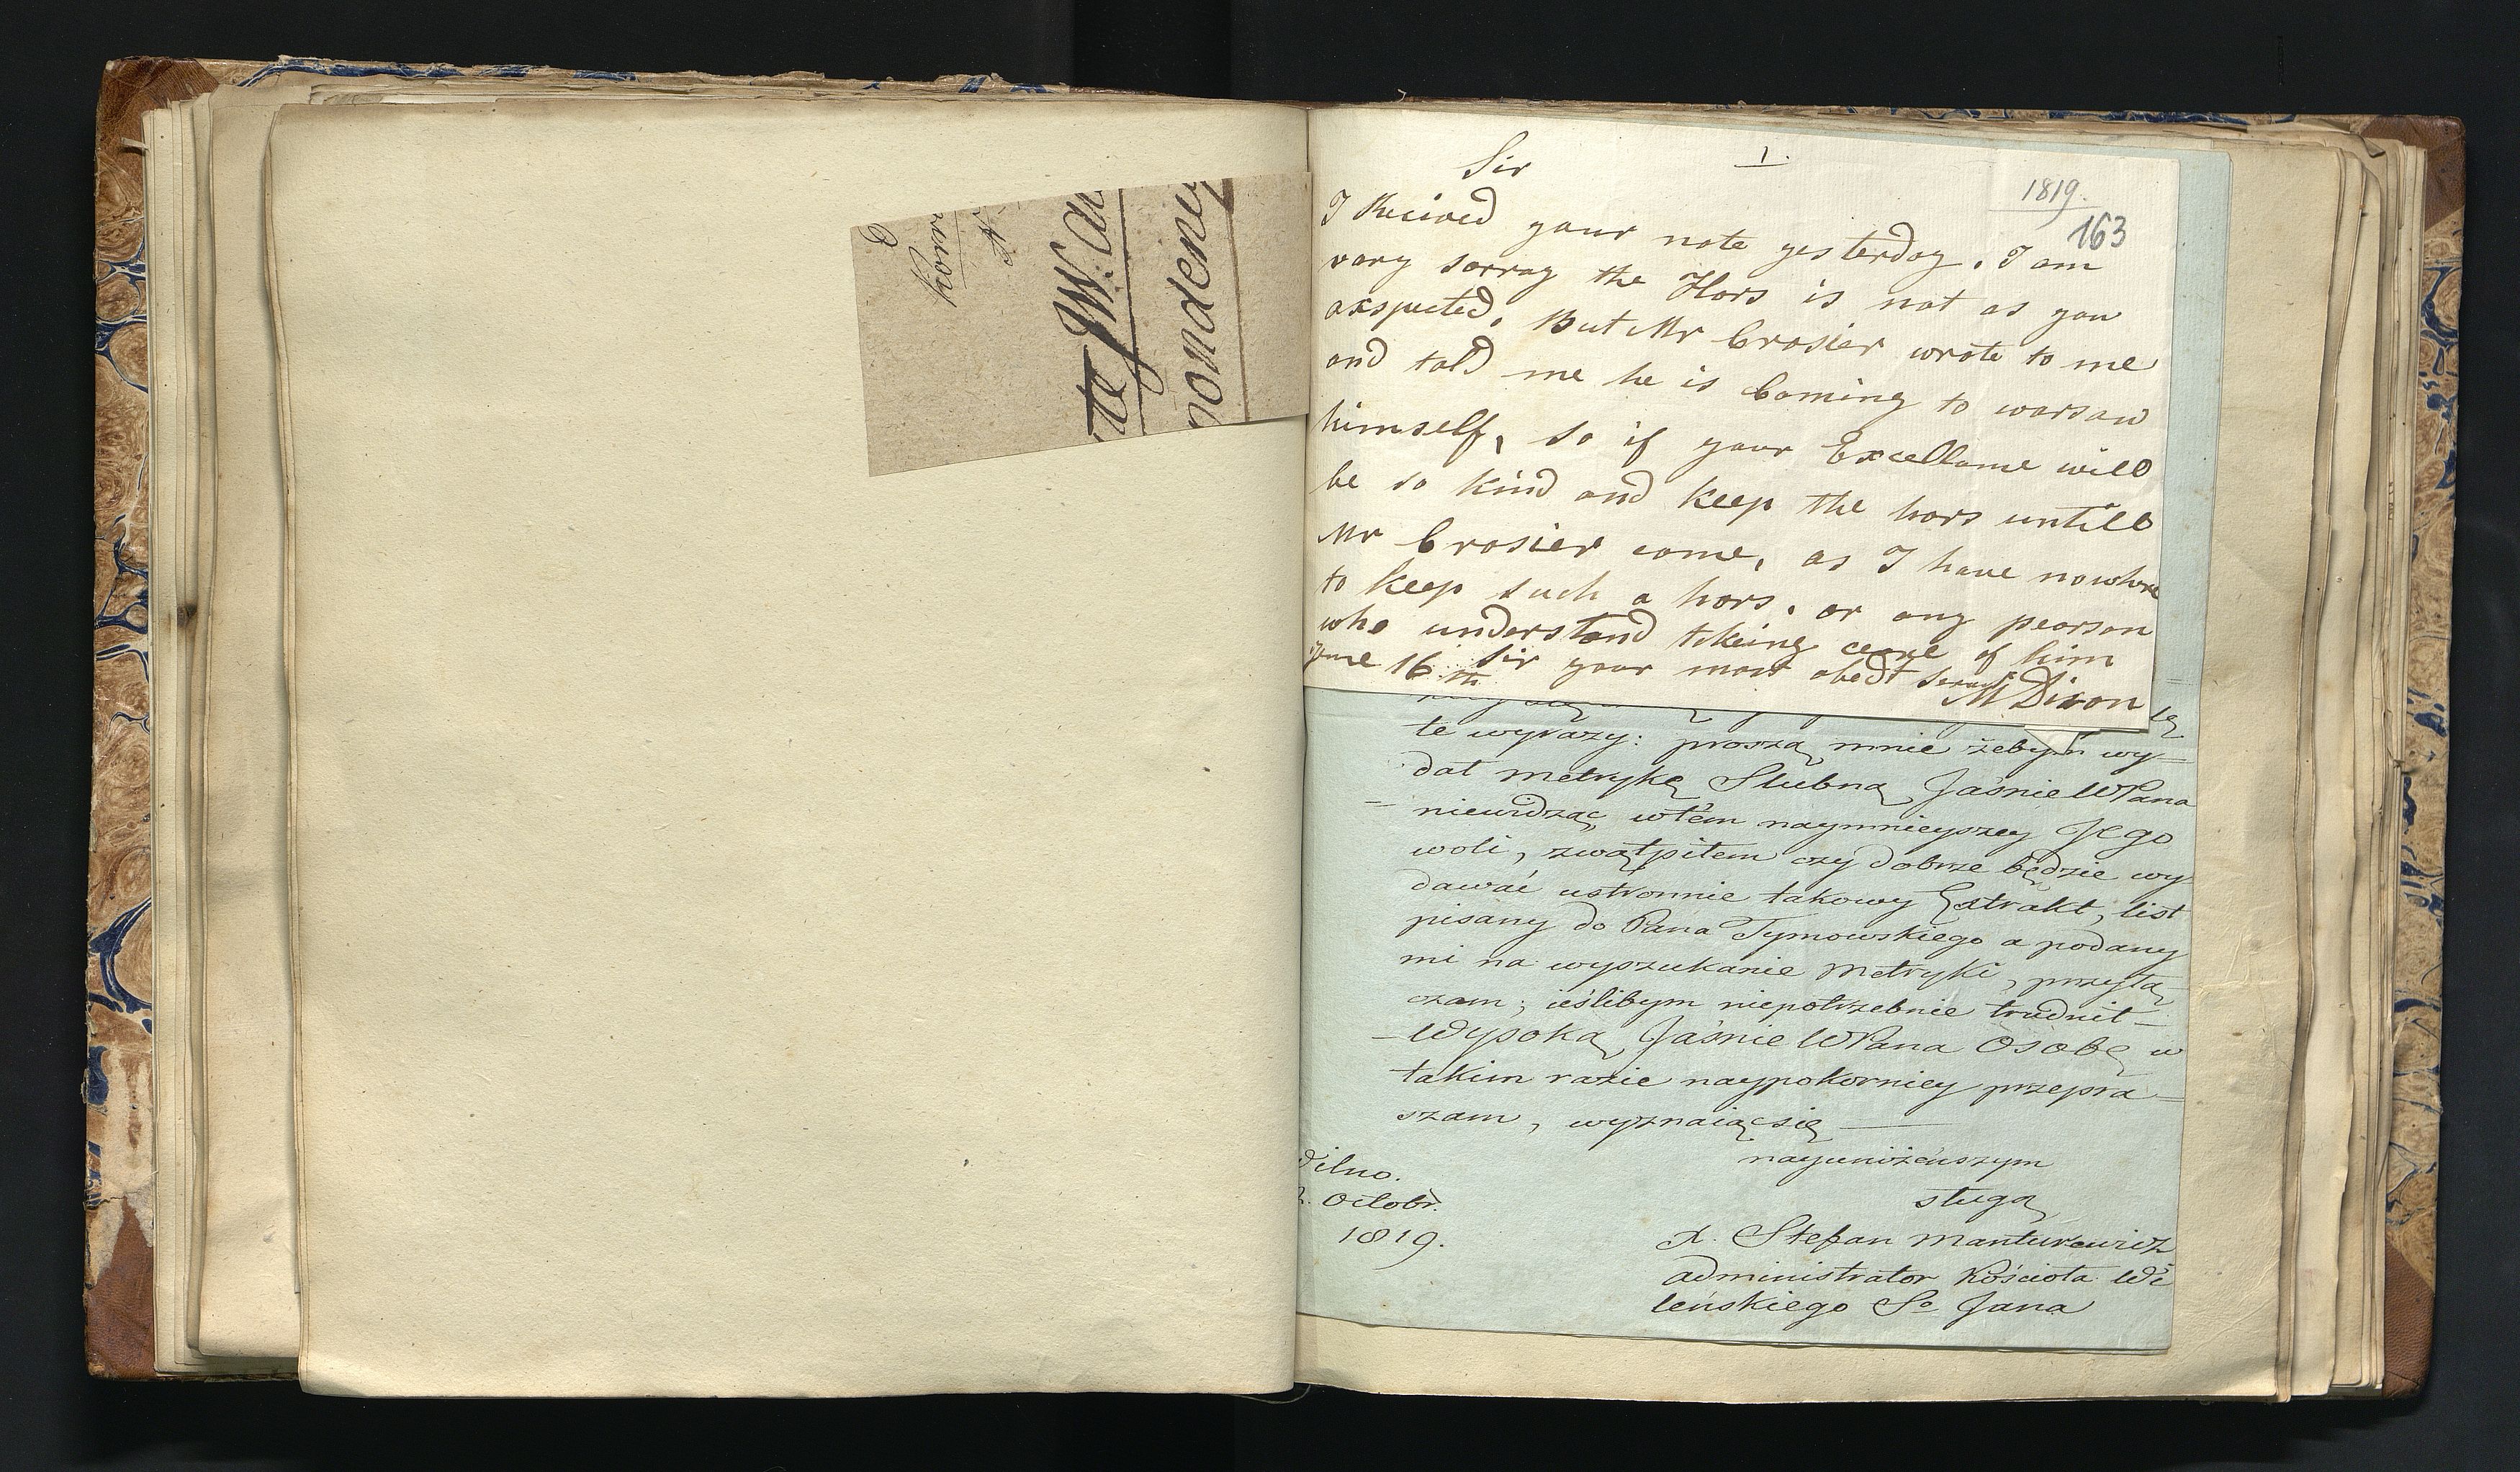 te JW.
Sir
1.
1819.
163
I Recived your note yesterday. I am
vary sorray the Hors is not as you
axspected. But Mr Crosier wrote to me
and told me he is Coming to warsaw
himself, so if your Excellame will
be so kind and keep the hors untill
Mr Crosier come, as I have nowhere
to keep such a hors. or any pearson
who understand tekeing ceare of him
June 16 th Sir your most obedt Servant
M Dixon
te wyrazy: proszą mnie żebym wy-
dał metrykę Slubną Jaśnie WPana
niewidząc wtem naymnieyszey Jego
woli, zwątpiłem czy dobrze będzie wy
dawać ustronnie takowy Extrakt, list
pisany do Pana Tymowskiego a podany
mi na wyszukanie Metryki, przyłą
czam; ieślibym niepotrzebnie trudnił
Wysoką Jaśnie WPana Osobę w
takim razie naypokorniey przepra-
szam, wyznaiąc się
nayuniżeńszym
sługą
Wilno.
Octobr.
1819.
X. Stefan Manturewicz
administrator Kościoła Wi
leńskiego So Jana